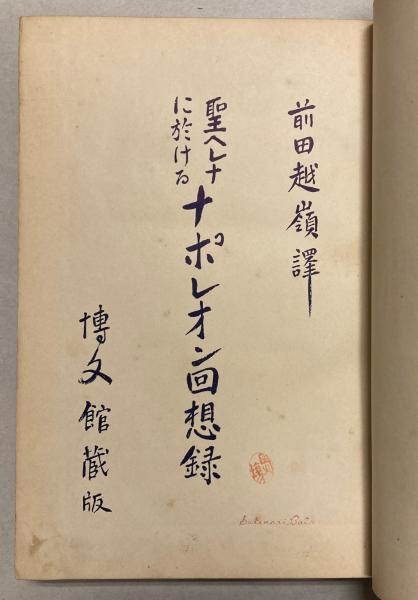 前田越嶺譯
聖ヘレナ
に於ける
ナポレオン回想録
博文館蔵版